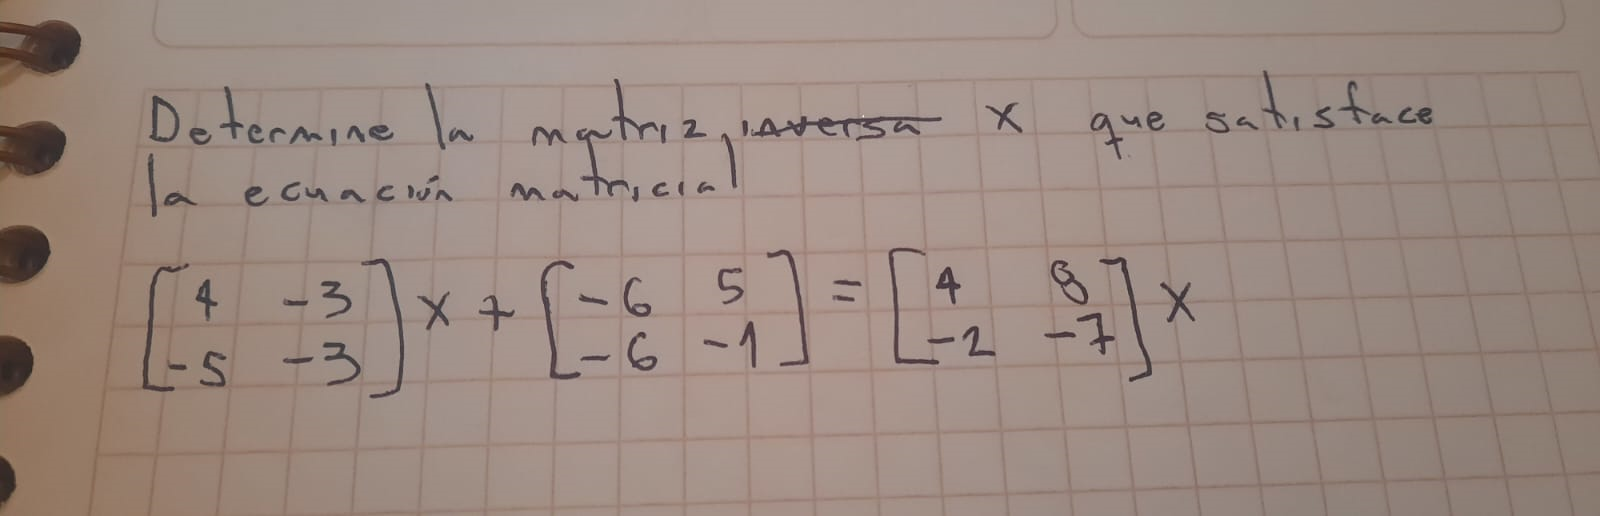 Determine la matriz, inversa X que satisface
la ecuación matricial
[4 -3; -5 -3] X + [-6 5; -6 -1] = [4 8; -2 -7] X